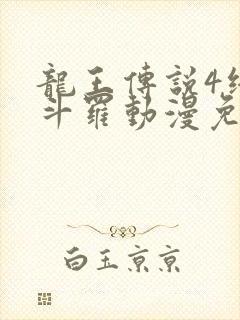 龍王傳說4
斗羅動漫免
白玉京京